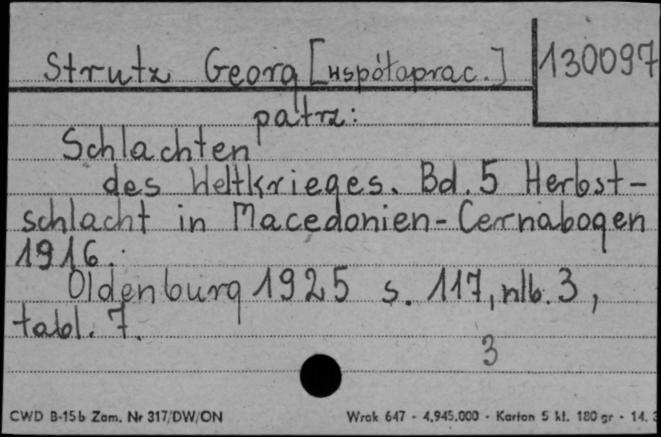 Strutz Georg [współoprac.] 130097
patrz:
Schlachten
des Weltkrieges. Bd. 5 Herbst-
schlacht in Macedonien-Cernabogen
1916.
Oldenburg 1925 s. 117, nlb. 3,
tabl. 7.
3
CWD B-15b Zam. Nr 317/DW/ON Wrak 647 - 4.945.000 - Karton 5 kl. 180 gr - 14. 3